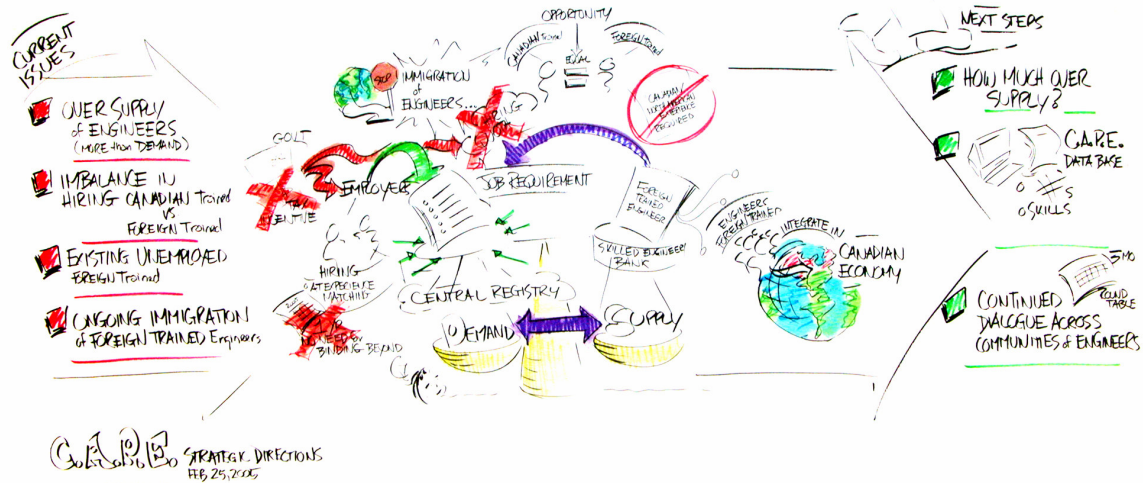 CURRENT
ISSUES
OVER SUPPLY
of ENGINEERS
(MORE than DEMAND)
IMBALANCE IN
HIRING CANADIAN Trained
VS
FOREIGN Trained
EXISTING UNEMPLOYED
FOREIGN Trained
ONGOING IMMIGRATION
of FOREIGN TRAINED Engineers
C.A.P.E. STRATEGIC DIRECTIONS
FEB 25, 2005
OPPORTUNITY
CANADIAN Trained
FOREIGN Trained
EQUAL
STOP
IMMIGRATION
of
ENGINEERS...
CANADIAN
EXPERIENCE
REQUIRED
GOV'T
EMPLOYERS
JOB REQUIREMENT
FOREIGN
TRAINED
ENGINEER
SKILLED ENGINEERS
BANK
HIRING
MATCHING
BINDING BEYOND
CENTRAL REGISTRY
DEMAND
SUPPLY
ENGINEERS
FOREIGN TRAINED
INTEGRATE IN
CANADIAN
ECONOMY
NEXT STEPS
HOW MUCH OVER
SUPPLY?
C.A.P.E.
DATA BASE
SKILLS
3 MO
ROUND
TABLE
CONTINUED
DIALOGUE ACROSS
COMMUNITIES of ENGINEERS